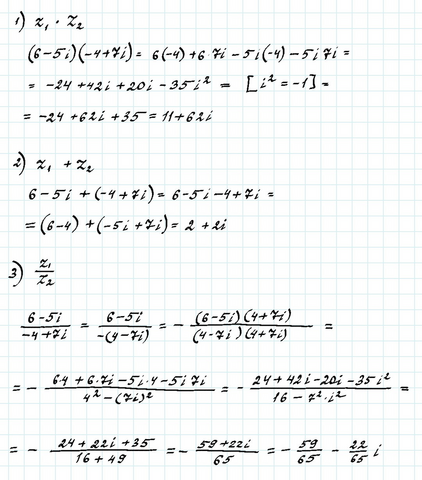 1) z₁ · z₂
(6-5i)(-4+7i) = 6(-4)+6·7i-5i(-4)-5i7i =
= -24+42i+20i-35i² = [i²=-1] =
= -24+62i+35 = 11+62i
2) z₁ + z₂
6-5i+(-4+7i) = 6-5i-4+7i =
= (6-4)+(-5i+7i) = 2+2i
3) z₁/z₂
(6-5i)/(-4+7i) = (6-5i)/(-(4-7i)) = -((6-5i)(4+7i))/((4-7i)(4+7i)) =
= -(6·4+6·7i-5i·4-5i7i)/(4²-(7i)²) = -(24+42i-20i-35i²)/(16-7²·i²) =
= -(24+22i+35)/(16+49) = -(59+22i)/65 = -59/65 - 22/65 i